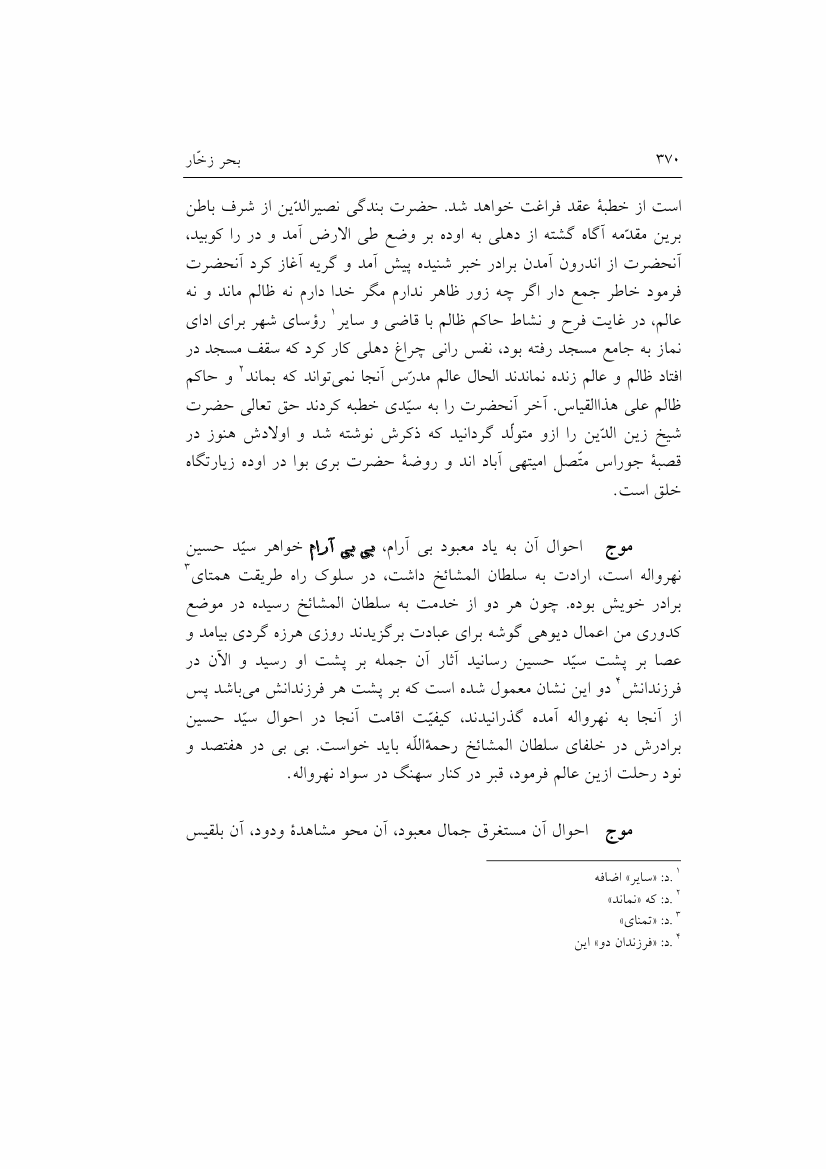 ۳۷۰ بحر زخّار
است از خطبهٔ عقد فراغت خواهد شد. حضرت بندگی نصیرالدّین از شرف باطن
برین مقدّمه آگاه گشته از دهلی به اوده بر وضع طی الارض آمد و در را کوبید،
آنحضرت از اندرون آمدن برادر خبر شنیده پیش آمد و گریه آغاز کرد آنحضرت
فرمود خاطر جمع دار اگر چه زور ظاهر ندارم مگر خدا دارم نه ظالم ماند و نه
عالم، در غایت فرح و نشاط حاکم ظالم با قاضی و سایر۱ رؤسای شهر برای ادای
نماز به جامع مسجد رفته بود، نفس رانی چراغ دهلی کار کرد که سقف مسجد در
افتاد ظالم و عالم زنده نماندند الحال عالم مدرّس آنجا نمی‌تواند که بماند۲ و حاکم
ظالم علی هذاالقیاس. آخر آنحضرت را به سیّدی خطبه کردند حق تعالی حضرت
شیخ زین الدّین را ازو متولّد گردانید که ذکرش نوشته شد و اولادش هنوز در
قصبهٔ جوراس متّصل امیتهی آباد اند و روضهٔ حضرت بری بوا در اوده زیارتگاه
خلق است.
موج احوال آن به یاد معبود بی آرام، بی بی آرام خواهر سیّد حسین
نهرواله است، ارادت به سلطان المشائخ داشت، در سلوک راه طریقت همتای۳
برادر خویش بوده. چون هر دو از خدمت به سلطان المشائخ رسیده در موضع
کدوری من اعمال دیوهی گوشه برای عبادت برگزیدند روزی هرزه گردی بیامد و
عصا بر پشت سیّد حسین رسانید آثار آن جمله بر پشت او رسید و الآن در
فرزندانش۴ دو این نشان معمول شده است که بر پشت هر فرزندانش می‌باشد پس
از آنجا به نهرواله آمده گذرانیدند، کیفیّت اقامت آنجا در احوال سیّد حسین
برادرش در خلفای سلطان المشائخ رحمةاللّه باید خواست. بی بی در هفتصد و
نود رحلت ازین عالم فرمود، قبر در کنار سهنگ در سواد نهرواله.
موج احوال آن مستغرق جمال معبود، آن محو مشاهدهٔ ودود، آن بلقیس
۱ .د: «سایر» اضافه
۲ .د: که «نماند»
۳ .د: «تمنای»
۴ .د: «فرزندان دو» این